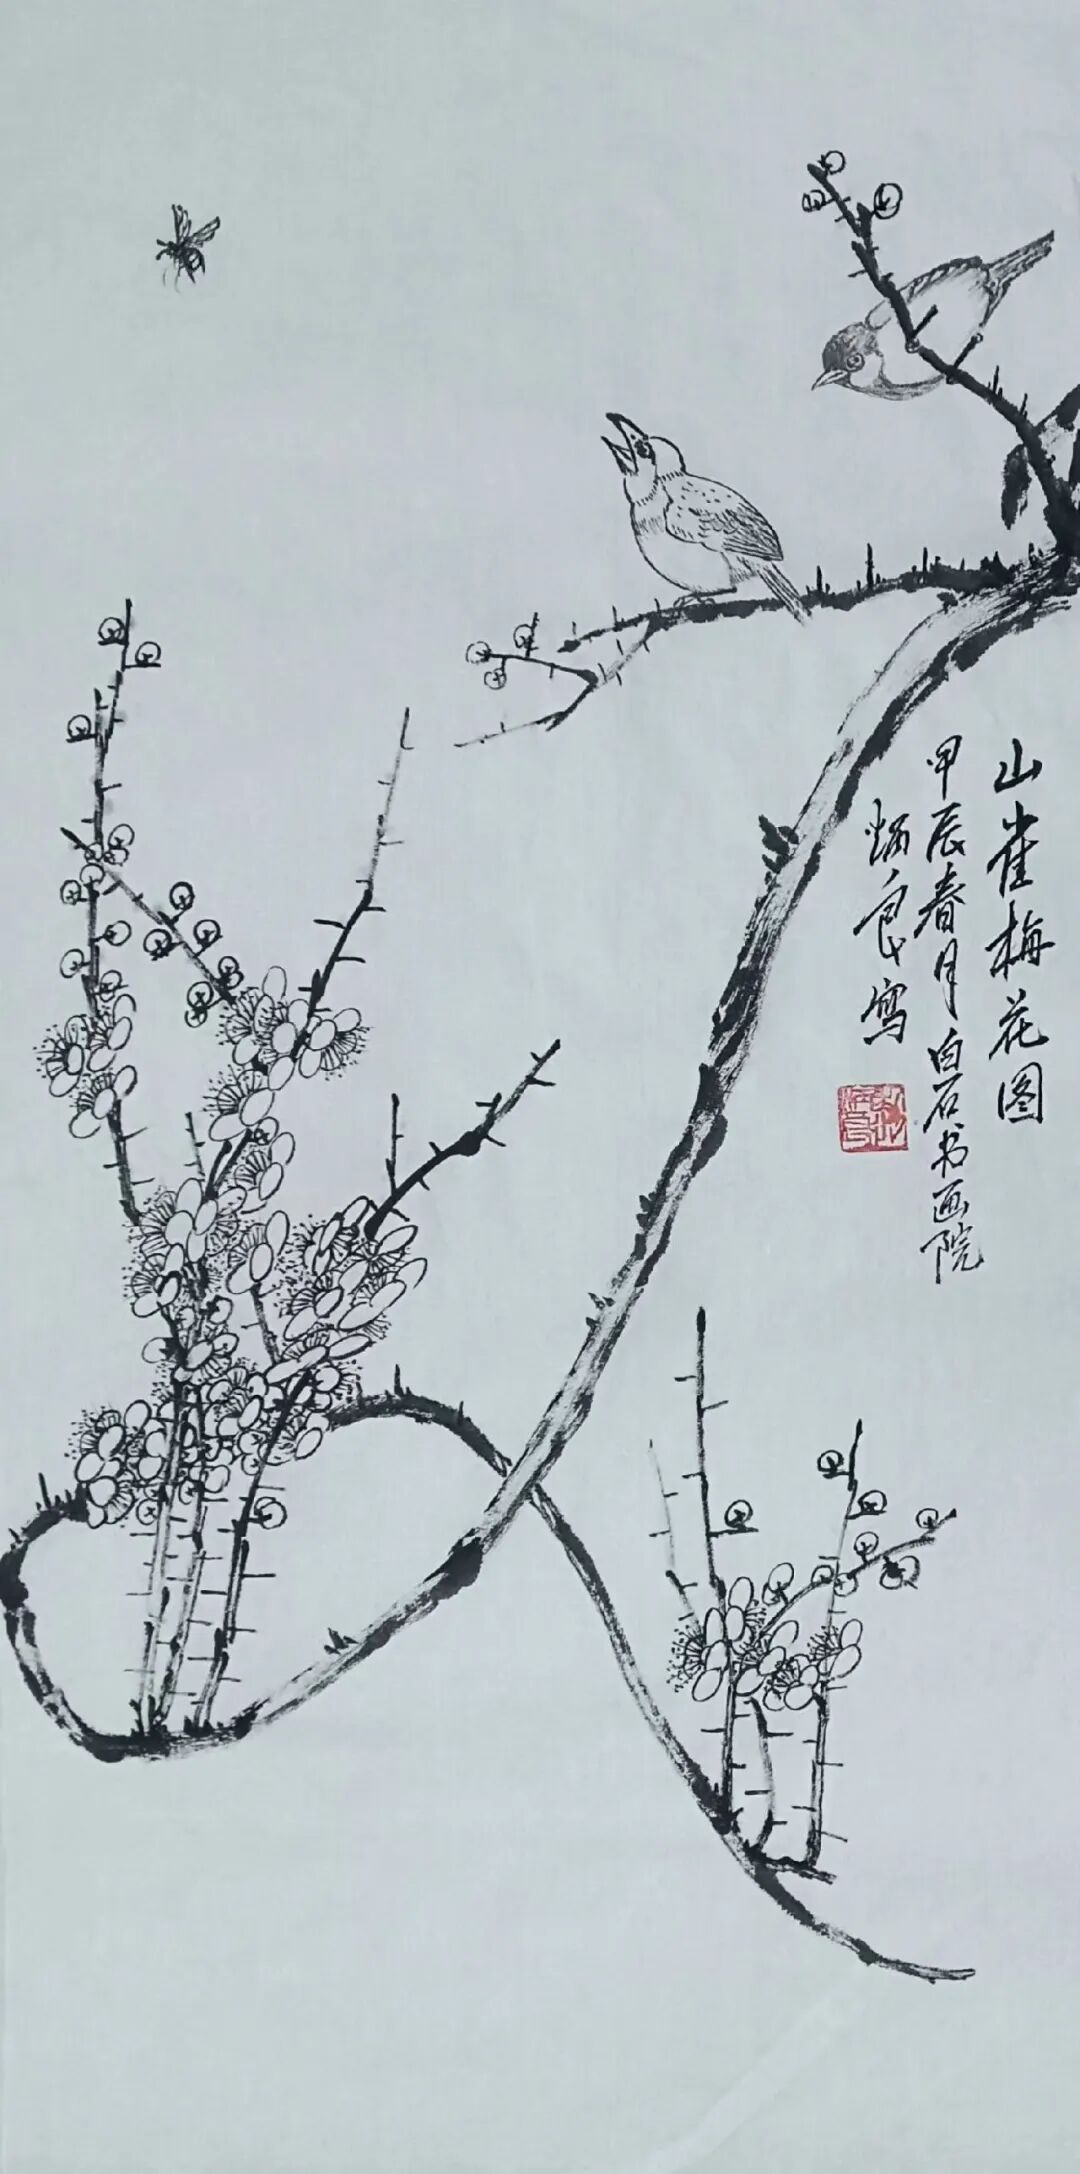 山雀梅花图
甲辰春月白石书画院
炳良写